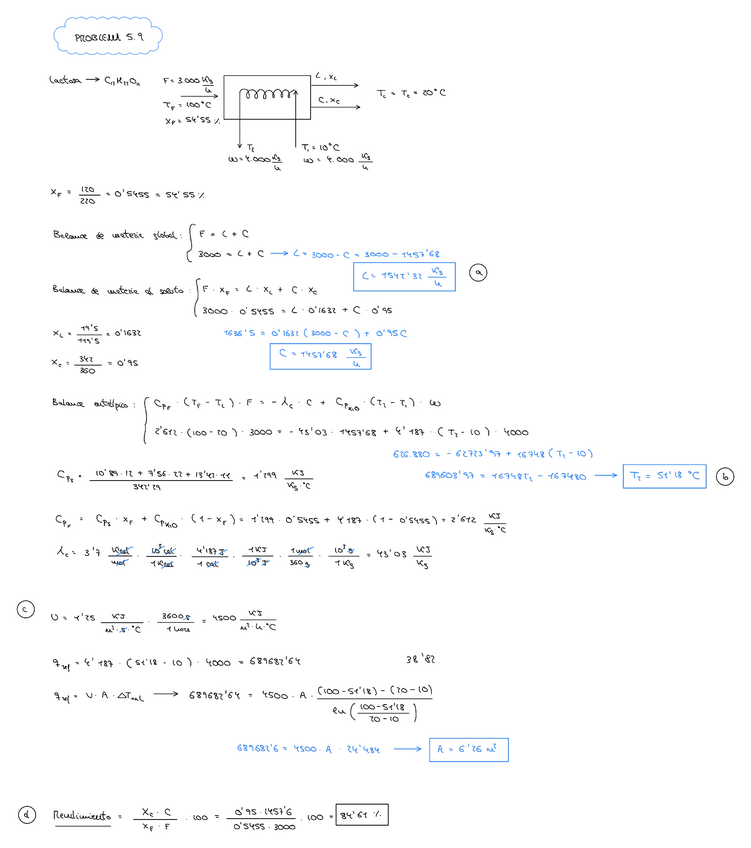 PROBLEM 5.9
Lactosa → C12H22O11
F = 3.000 Kg/h
TF = 100°C
XF = 54'55 %
L, xL
C, xC
TL = TC = 20°C
T2
ω = 4.000 Kg/h
T1 = 10°C
ω = 4.000 Kg/h
XF = 120/220 = 0'5455 = 54'55 %
Balance de materia global: { F = L + C
3000 = L + C → L = 3000 - C = 3000 - 1457'68
L = 1542'32 Kg/h
a
Balance de materia al soluto: { F · XF = L · XL + C · XC
3000 · 0'5455 = L · 0'1632 + C · 0'95
XL = 19'5/119'5 = 0'1632
1636'5 = 0'1632 (3000 - C) + 0'95C
XC = 342/360 = 0'95
C = 1457'68 Kg/h
Balance entálpico: { CPF · (TF - TL) · F = - λC · C + CPH2O · (T2 - T1) · ω
2'612 · (100 - 20) · 3000 = - 43'03 · 1457'68 + 4'187 · (T2 - 10) · 4000
626.880 = - 62723'97 + 16748 (T2 - 10)
CPS = (10'89 · 12 + 7'56 · 22 + 13'42 · 11)/342'29 = 1'299 KJ/Kg·°C
689603'97 = 16748T2 - 167480 → T2 = 51'18 °C
b
CPF = CPS · XF + CPH2O · (1 - XF) = 1'299 · 0'5455 + 4'187 · (1 - 0'5455) = 2'612 KJ/Kg·°C
λC = 3'7 Kcal/mol · 10³ cal/1 Kcal · 4'187 J/1 cal · 1 KJ/10³ J · 1 mol/360 g · 10³ g/1 Kg = 43'03 KJ/Kg
c
U = 1'25 KJ/m²·s·°C · 3600 s/1 hora = 4500 KJ/m²·h·°C
qref = 4'187 · (51'18 - 10) · 4000 = 689682'64
38'82
qref = U · A · ΔTmL → 689682'64 = 4500 · A · ((100-51'18) - (20-10))/ln((100-51'18)/(20-10))
689682'6 = 4500 · A · 24'484 → A = 6'26 m²
d
Rendimiento = (XC · C)/(XF · F) · 100 = (0'95 · 1457'6)/(0'5455 · 3000) · 100 = 84'61 %